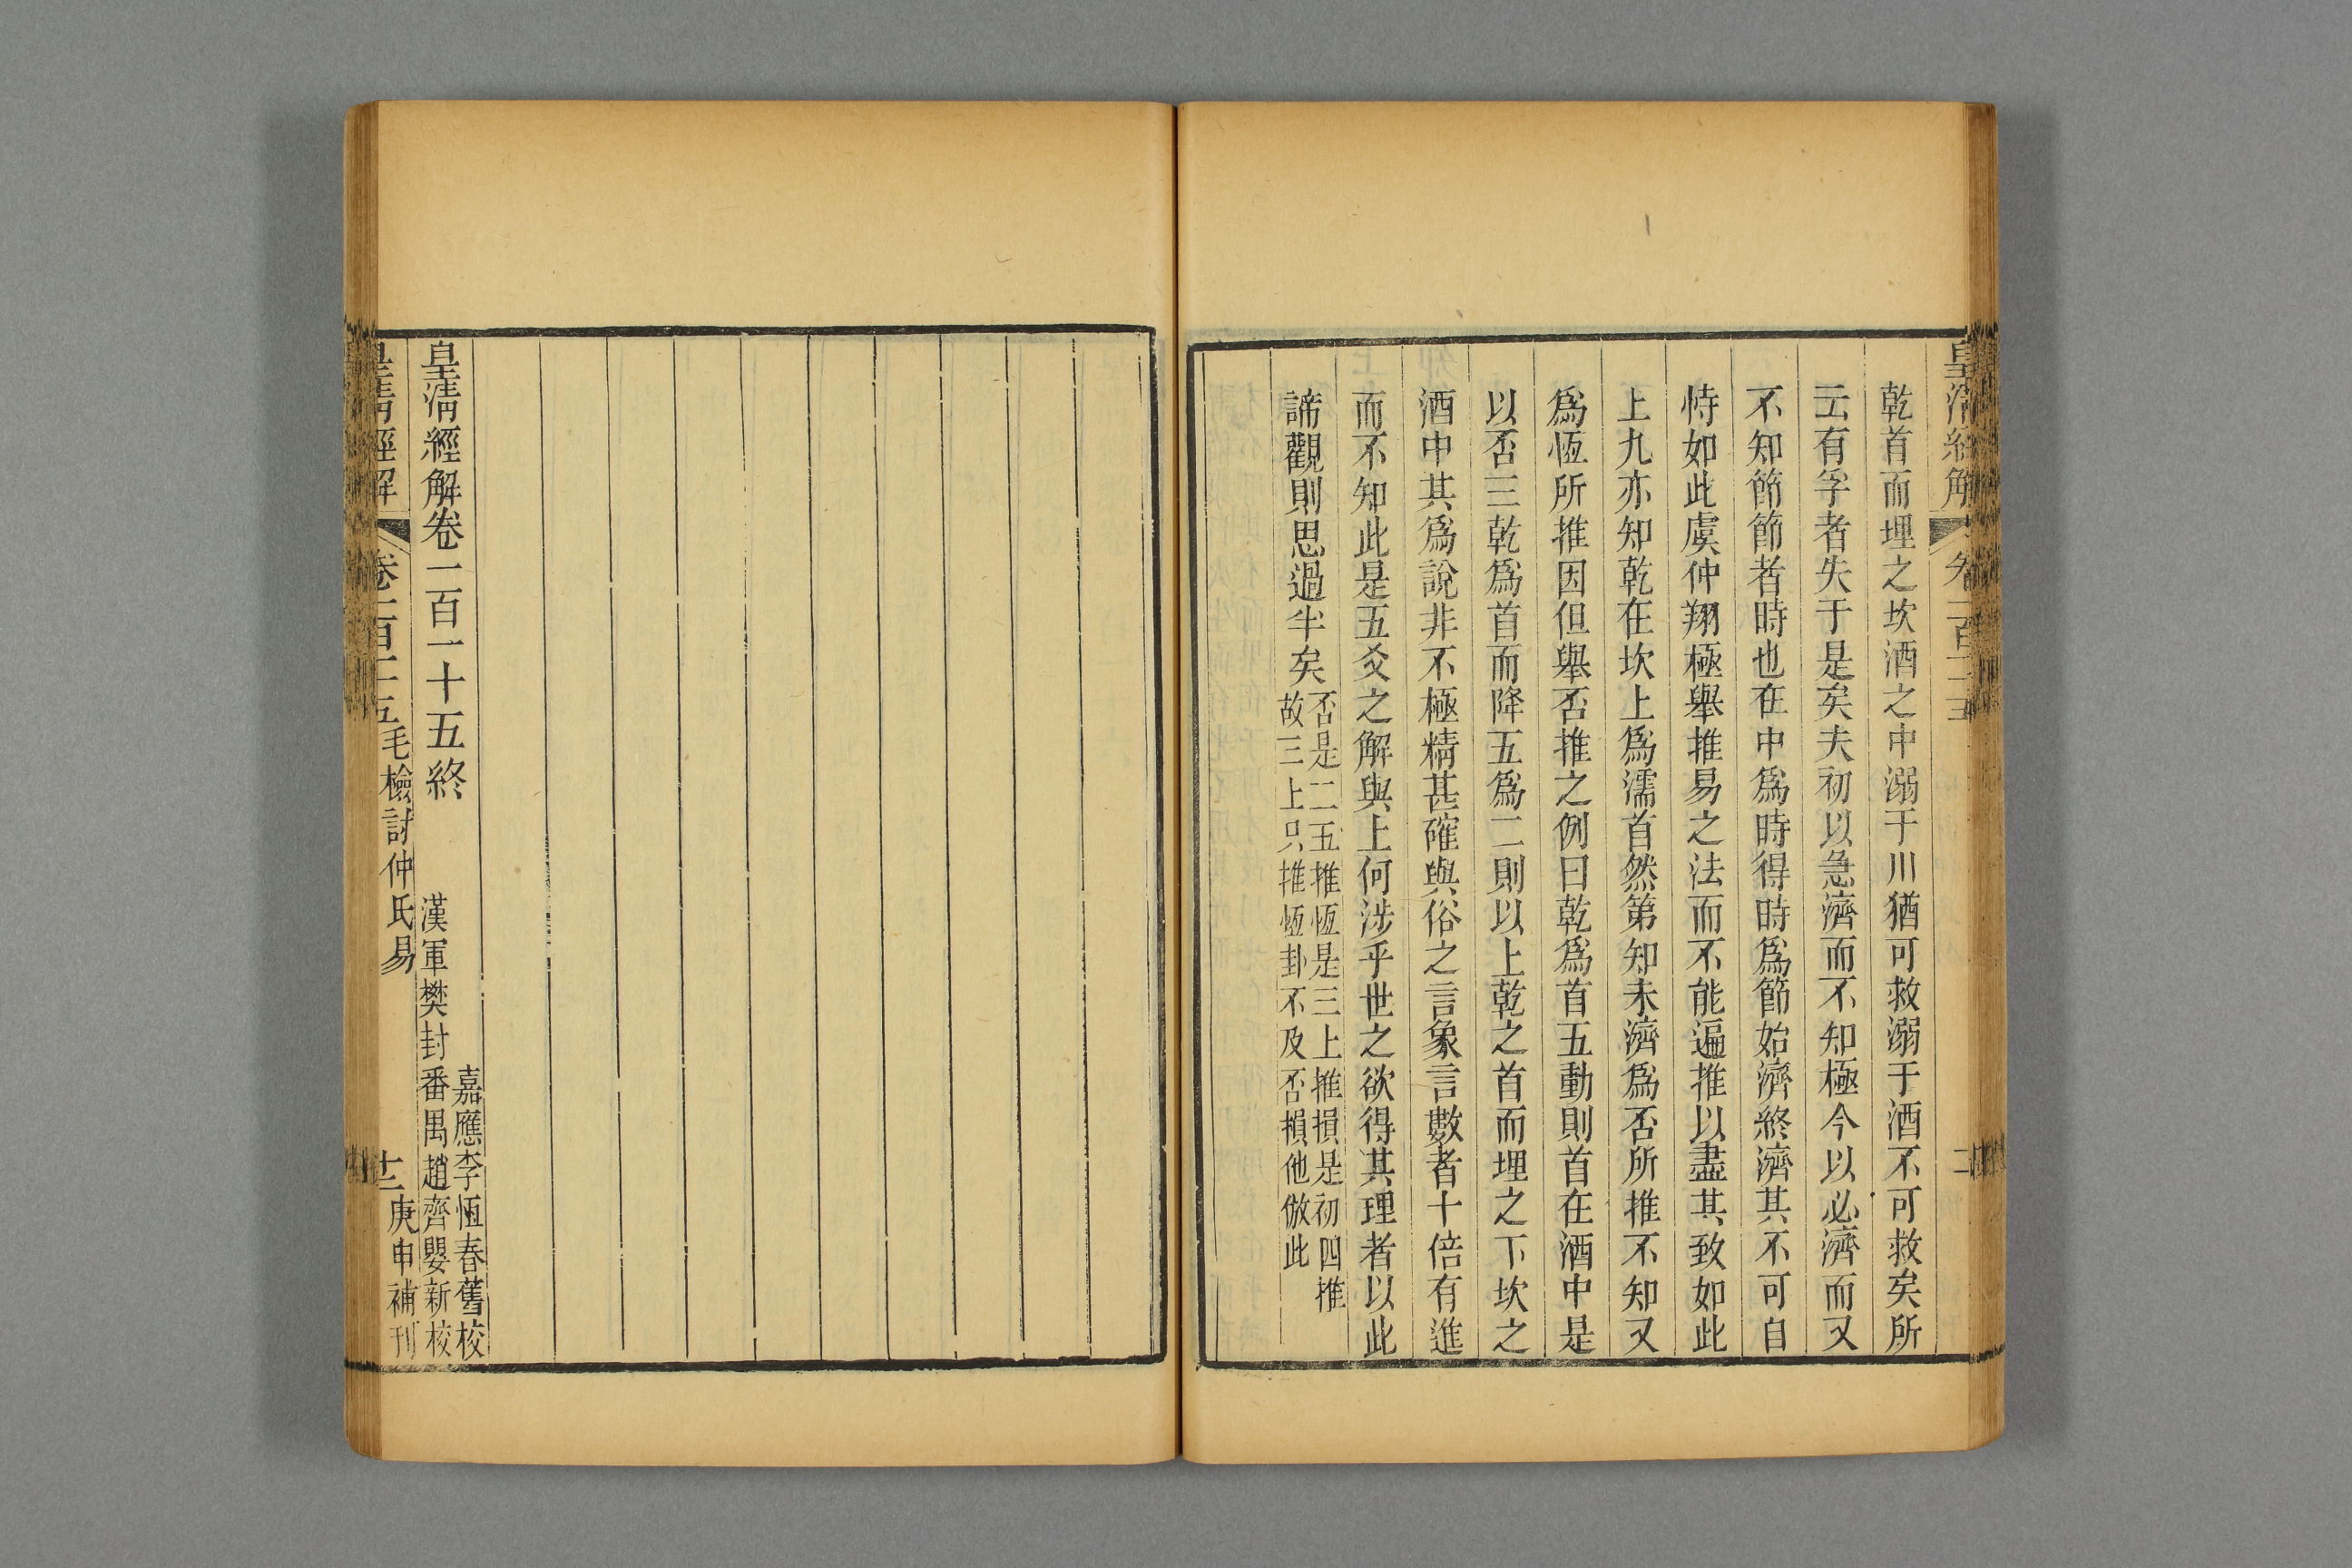 乾首而埋之坎酒之中溺于川猶可救溺于酒不可救矣所
云有孚者失于是矣夫初以急濟而不知極今以必濟而又
不知節節者時也在中爲時得時爲節始濟終濟其不可自
恃如此虞仲翔極舉推易之法而不能遍推以盡其致如此
上九亦知乾在坎上爲濡首然第知未濟爲否所推不知又
爲恆所推因但舉否推之例曰乾爲首五動則首在酒中是
以否三乾爲首而降五爲二則以上乾之首而埋之下坎之
酒中其爲說非不極精甚確與俗之言象言數者十倍有進
而不知此是五爻之解與上何涉乎世之欲得其理者以此
諦觀則思過半矣
否是二五推恆是三上推損是初四推
故三上只推恆卦不及否損他倣此
嘉應李恆春舊校
皇淸經解卷一百一十五終
漢軍樊封番禺趙齊嬰新校
皇淸經解
卷一百十五毛檢討仲氏易
十二
庚申補刊